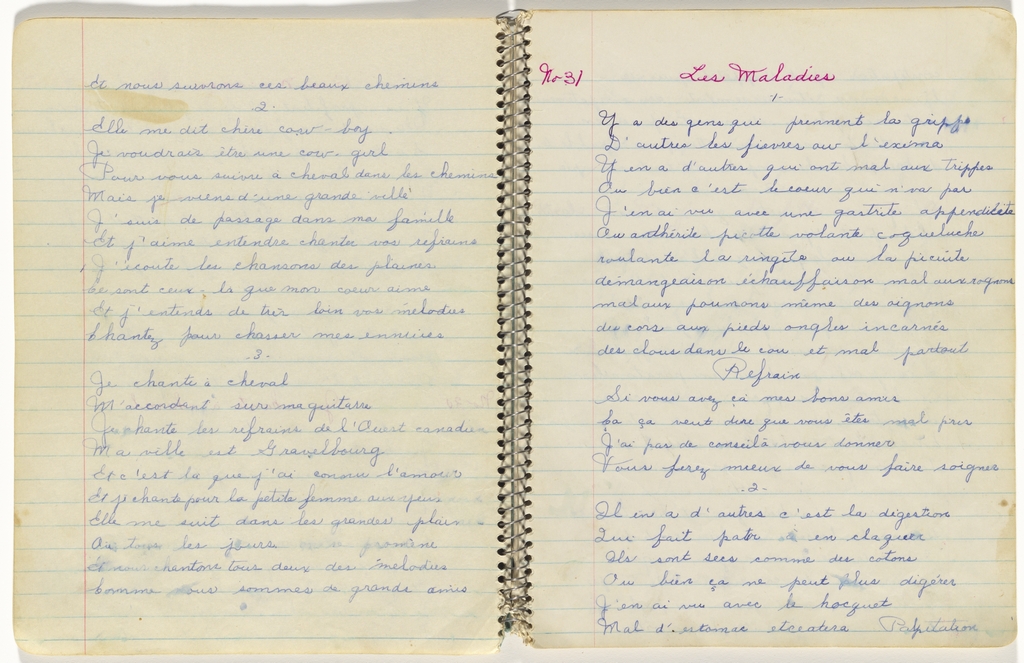 Et nous suivrons ces beaux chemins
2.
Elle me dit chère cow-boy.
Je voudrais être une cow-girl
Pour vous suivre à cheval dans les chemins
Mais je viens d'une grande ville
J'suis de passage dans ma famille
Et j'aime entendre chanter vos refrains
J'écoute les chansons des plaines
Ce sont ceux-la que mon coeur aime
Et j'entends de très loin vos mélodies
Chantez pour chasser mes ennuies
-3-
Je chante à cheval
M'accordant sur ma guitare
Je chante les refrains de l'Ouest canadien
Ma ville est Gravelbourg
Et c'est la que j'ai connu l'amour
Et je chante pour la petite femme aux yeux
Elle me suit dans les grandes plain
Ou tous les jours promène
Et nous chantons tous deux des mélodies
Comme nous sommes de grands amis
No 31 Les Maladies
-1-
Y a des gens qui prennent la grippe
D'autres les fievres ouv l'exéma
Y en a d'autres qui ont mal aux trippes
Ou bien c'est le coeur qui n'va pas
J'en ai vu avec une gastrite appendicite
Ou anthérite picotte volante coqueluche
roulante la ringite ou la picuite
démangeaison échauffaison mal aux rognons
mal aux poumons même des oignons
des cors aux pieds ongles incarnés
des clous dans le cou et mal partout
Refrain
Si vous avez ça mes bons amis
Ca ça veut dire que vous êtes mal pris
J'ai pas de conseil à vous donner
Vous ferez mieux de vous faire soigner
-2-
Il en a d'autres c'est la digestion
Qui fait en claquer
Ils sont secs comme des cotons
Ou bien ça ne peut plus digérer
J'en ai vu avec le hocquet
Mal d'estomac etceatera Palpitation